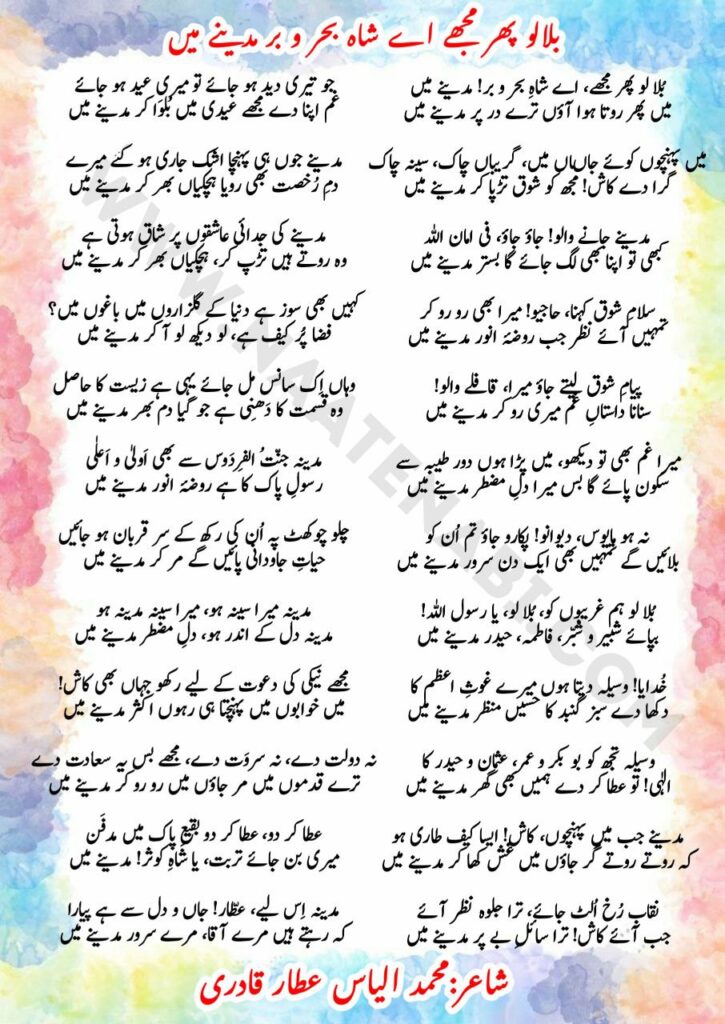 بلا لو پھر مجھے اے شاہ بحر و بر مدینے میں
بُلا لو پھر مجھے، اے شاہِ بحر و بر! مدینے میں
میں پھر روتا ہوا آؤں ترے در پر مدینے میں
میں پہنچوں کوئے جاناں میں، گریباں چاک، سینہ چاک
گرا دے کاش! مجھ کو شوق تڑپا کر مدینے میں
مدینے جانے والو! جاؤ جاؤ، فی امان اللہ
کبھی تو اپنا بھی لگ جائے گا بستر مدینے میں
سلامِ شوق کہنا، حاجیو! میرا بھی رو رو کر
تمہیں آئے نظر جب روضۂ انور مدینے میں
پیامِ شوق لیتے جاؤ میرا، قافلے والو!
سنانا داستانِ غم میری رو کر مدینے میں
میرا غم بھی تو دیکھو، میں پڑا ہوں دور طیبہ سے
سکون پائے گا بس میرا دلِ مضطر مدینے میں
نہ ہو مایوس، دیوانو! پکارو جاؤ تم اُن کو
بلائیں گے تمہیں بھی ایک دن سرور مدینے میں
بُلا لو ہم غریبوں کو، بُلا لو، یا رسول اللہ!
بپائے شبیر و شبّر، فاطمہ، حیدر مدینے میں
خُدایا! وسیلہ دیتا ہوں میرے غوثِ اعظم کا
دکھا دے سبز گنبد کا حسیں منظر مدینے میں
وسیلہ تجھ کو بو بکر و عمر، عثمان و حیدر کا
الٰہی! تو عطا کر دے ہمیں بھی گھر مدینے میں
مدینے جب میں پہنچوں، کاش! ایسا کیف طاری ہو
کہ روتے روتے گر جاؤں میں غش کھا کر مدینے میں
نقاب رُخ اُلٹ جائے، ترا جلوہ نظر آئے
جب آئے کاش! ترا سائلِ بے پر مدینے میں
جو تیری دید ہو جائے تو میری عید ہو جائے
غم اپنا دے مجھے عیدی میں بُلوا کر مدینے میں
مدینے جوں ہی پہنچا اشک جاری ہو گئے میرے
دمِ رُخصت بھی رویا ہچکیاں بھر کر مدینے میں
مدینے کی جدائی عاشقوں پر شاق ہوتی ہے
وہ روتے ہیں تڑپ کر، ہچکیاں بھر کر مدینے میں
کہیں بھی سوز ہے دنیا کے گلزاروں میں باغوں میں؟
فضا پُر کیف ہے، لو دیکھ لو آ کر مدینے میں
وہاں اِک سانس مل جائے یہی ہے زیست کا حاصل
وہ قسمت کا دَھنِی ہے جو گیا دم بھر مدینے میں
مدینہ جنّتُ الفِردَوس سے بھی اَولیٰ و اَعلٰی
رسولِ پاک کا ہے روضۂ انور مدینے میں
چلو چوکھٹ پہ اُن کی رکھ کے سر قربان ہو جائیں
حیاتِ جاودانی پائیں گے مر کر مدینے میں
مدینہ میرا سینہ ہو، میرا سینہ مدینہ ہو
مدینہ دل کے اندر ہو، دلِ مضطر مدینے میں
مجھے نیکی کی دعوت کے لیے رکھو جہاں بھی کاش!
میں خوابوں میں پہنچتا ہی رہوں اکثر مدینے میں
نہ دولت دے، نہ سروَت دے، مجھے بس یہ سعادت دے
ترے قدموں میں مر جاؤں میں رو رو کر مدینے میں
عطا کر دو، عطا کر دو بقیعِ پاک میں مدفَن
میری بن جائے تربت، یا شاہِ کوثر! مدینے میں
مدینہ اِس لیے، عطّار! جاں و دل سے ہے پیارا
کہ رہتے ہیں مرے آقا، مرے سرور مدینے میں
شاعر:محمد الیاس عطار قادری
WWW.NAATENABI.COM